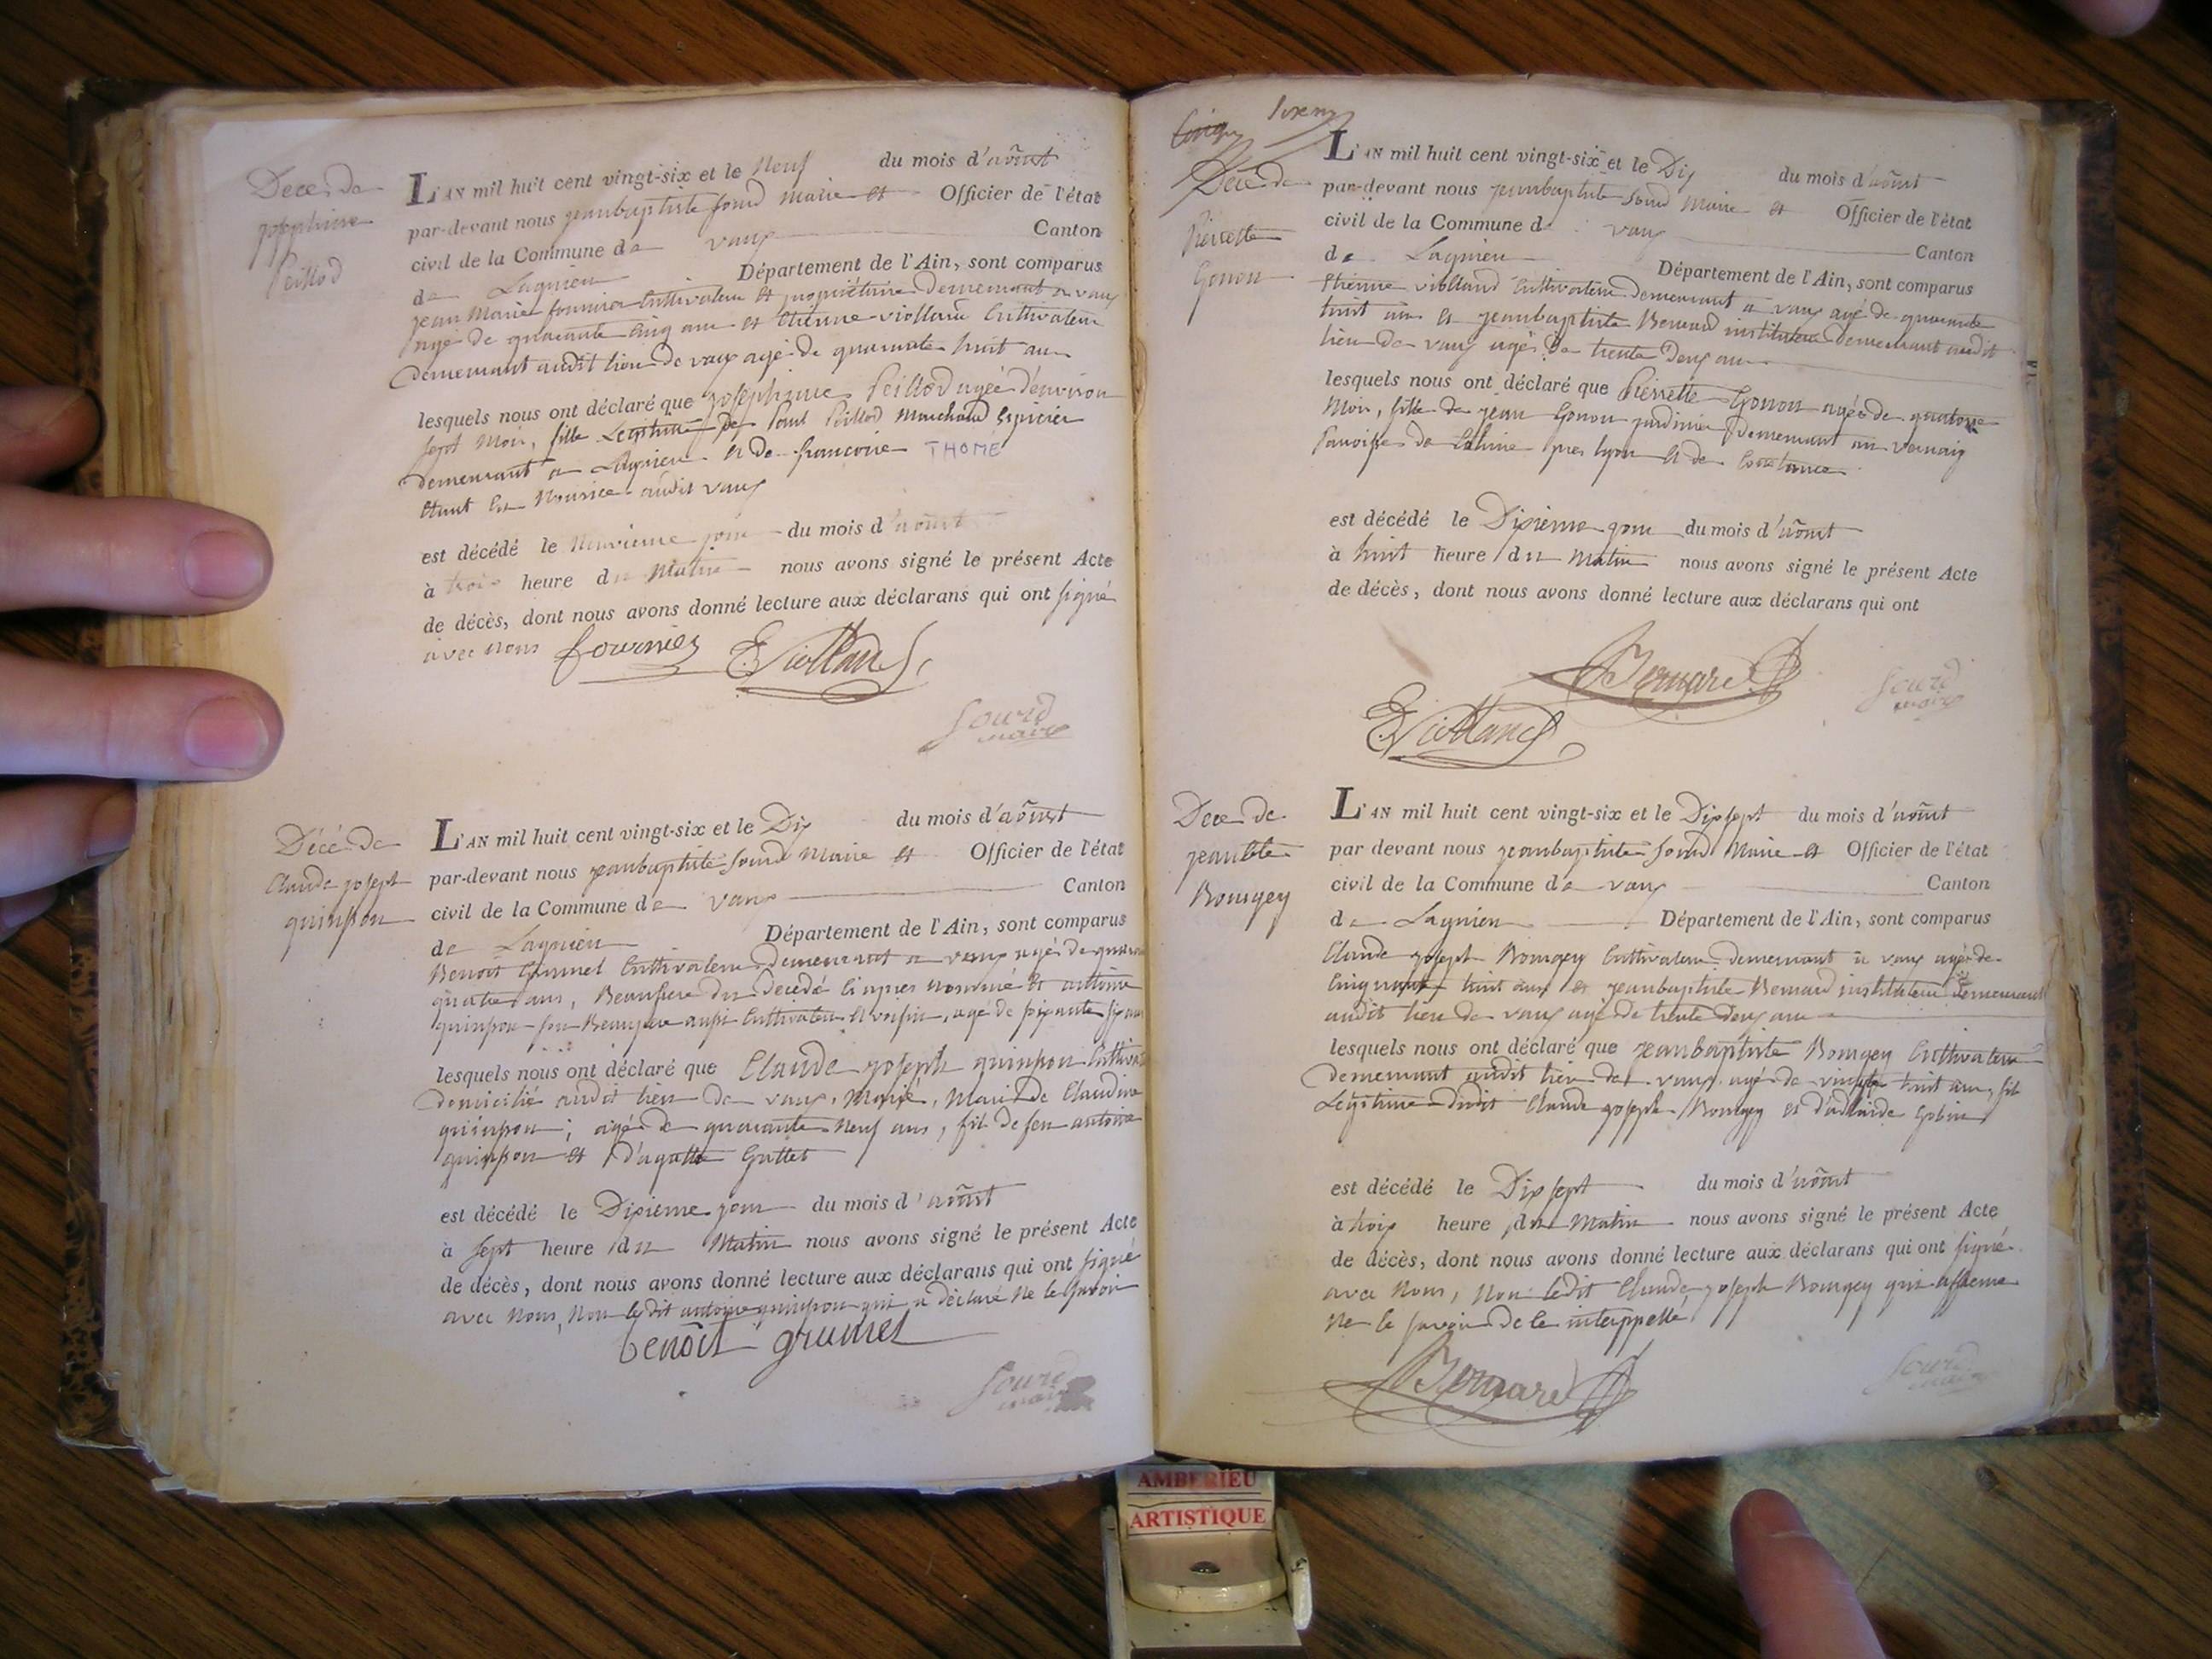 Décé de
josephine
Peillod
L'AN mil huit cent vingt-six et le Neuf du mois d'aôust
par-devant nous jeanbaptiste Sourd Maire et Officier de l'état
civil de la Commune de vaux Canton
de Lagnieu Département de l'Ain, sont comparus
jean Marie fournier Cultivateur et propriétaire demeurant a vaux
agé de quarante cinq ans et Etienne violland Cultivateur
demeurant audit lieu de vaux agé de quarante huit ans
lesquels nous ont déclaré que josephine Peillod agée d'environ
sept Mois, fille Legitime de Paul Peillod Marchand Epicier
demeurant a Lagnieu et de francoise THOME
étant en Nourice audit vaux
est décédé le Neuvieme jour du mois d'aôust
à trois heure du Matin nous avons signé le présent Acte
de décès, dont nous avons donné lecture aux déclarans qui ont signé
avec nous fournier E. Violland
Sourd
maire
Décé de
Claude joseph
quinson
L'AN mil huit cent vingt-six et le Dix du mois d'aôust
par-devant nous jeanbaptiste Sourd Maire et Officier de l'état
civil de la Commune de vaux Canton
de Lagnieu Département de l'Ain, sont comparus
Benoit Grumet Cultivateur demeurant a vaux agé de
quatre ans, Beaufrere du decedé ci apres nommé et antoine
quinson son Beaupere aussi Cultivateur et voisin, agé de soixante six ans
lesquels nous ont déclaré que Claude joseph quinson
domicilié audit lieu de vaux, Marié, Mari de Claudine
quinson; agé de quarante Neuf ans, fil de feu antoine
quinson et d'agatte Guttet
est décédé le Dixieme jour du mois d'aôust
à sept heure du Matin nous avons signé le présent Acte
de décès, dont nous avons donné lecture aux déclarans qui ont signé
avec Nous, Non ledit antoine quinson qui a déclaré Ne le savoir
benoit grumet
Sourd
maire
Décé de
Pierrette
Gonon
L'AN mil huit cent vingt-six et le Dix du mois d'aôust
par-devant nous jeanbaptiste Sourd Maire et Officier de l'état
civil de la Commune d vaux
de Lagnieu Canton
Département de l'Ain, sont comparus
Etienne violland Cultivateur demeurant a vaux agé de quarante
huit ans et jeanbaptiste Bernard instituteur demeurant audit
lieu de vaux agé de trente deux ans
lesquels nous ont déclaré que Pierrette Gonon agée de quatorze
Mois, fille de jean Gonon jardinier demeurant au
paroisse de pres lyon et de Constance
est décédé le Dixieme jour du mois d'aôust
à huit heure du Matin nous avons signé le présent Acte
de décès, dont nous avons donné lecture aux déclarans qui ont
Bernard
Sourd
maire
E. Violland
Décé de
jeanbte
Bourgey
L'AN mil huit cent vingt-six et le Dixsept du mois d'aôust
par devant nous jeanbaptiste Sourd Maire et Officier de l'état
civil de la Commune de vaux Canton
de Lagnieu Département de l'Ain, sont comparus
Claude joseph Bourgey Cultivateur demeurant a vaux agé de
Cinquante huit ans et jeanbaptiste Bernard instituteur demeurant
audit lieu de vaux agé de trente deux ans
lesquels nous ont déclaré que jeanbaptiste Bourgey Cultivateur
demeurant audit lieu de vaux agé de vingt huit ans, fil
Legitime dudit Claude joseph Bourgey et d'adlaide Gobin
est décédé le Dix sept du mois d'aôust
à trois heure du Matin nous avons signé le présent Acte
de décès, dont nous avons donné lecture aux déclarans qui ont signé
avec Nous, Non ledit Claude joseph Bourgey qui affirme
Ne le savoir de ce interppellé
Bernard
Sourd
maire
AMBERIEU
ARTISTIQUE